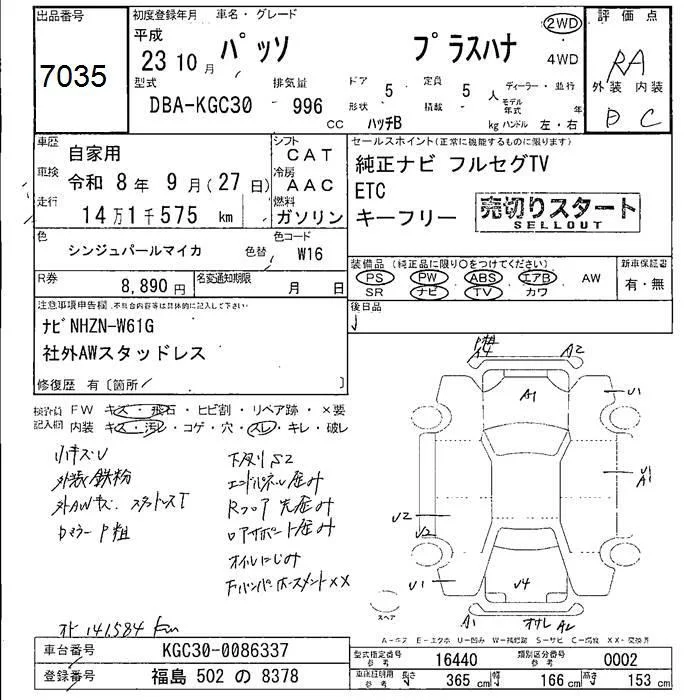 出品番号
7035
初度登録年月 車名・グレード
平成
23 10 月 パッソ プラスハナ
2WD
4WD
型式 排気量 ドア 定員 ディーラー・並行
DBA-KGC30 996 5 5 人 モデル年式 年
CC 形状 ハッチB 積載 kg ハンドル 左・右
評価点
RA
外装 内装
D C
車歴 自家用
車検 令和 8 年 9 月(27 日)
走行 14 万 1 千 575 km
シフト CAT
冷房 AAC
燃料 ガソリン
色 シンジュパールマイカ 色替
色コード W16
R券 8,890 円 名変通知期限 月 日
セールスポイント(正常に機能するものに限ります)
純正ナビ フルセグTV
ETC
キーフリー
売切りスタート
SELLOUT
装備品(純正品に限り○をつけてください) 新車保証書
PS PW ABS エアB AW 有・無
SR ナビ TV カワ
後日品
注意事項申告欄
ナビNHZN-W61G
社外AWスタッドレス
修復歴 有〔箇所 〕
検査員 FW キズ・飛石・ヒビ割・リペア跡・×要
記入欄 内装 キズ・汚レ・コゲ・穴・スレ・キレ・破レ
小キズU
外装鉄粉
外AWキズ、スタットレスT
DミラーP粗
下廻りS2
エンドパネル歪み
Rフロア先歪み
ロアサポート歪み
オイルにじみ
××
オド 141584 km
A4
A2
A1
U1
U1
A1
U2
U2
U1
U4
A1
A2
スペア
A-キズ E-エクボ U-凹み W-補修跡 S-サビ C-腐食 XX-交換済
車台番号 KGC30-0086337
登録番号 福島 502 の 8378
型式指定番号 参考 16440 類別区分番号 参考 0002
車庫証明用 参考 長さ 365 cm 幅 166 cm 高さ 153 cm